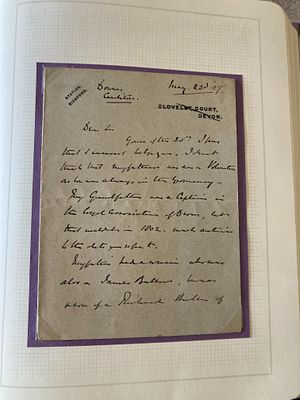 STATION,
BIDEFORD.
Downes
Crediton
May 22nd '07.
CLOVELLY COURT,
DEVON.
Dear Sir
Yours of the 20th. I fear
that I cannot help you. I do not
think that my father was ever a Volunteer
as he was always in the Yeomanry –
My Grandfather was a Captain in
the Loyal Association of Devon, but
that was in 1802. much anterior
to the date you
My father had a cousin who was
also a James Buller, he was
a son of a Richard Buller of